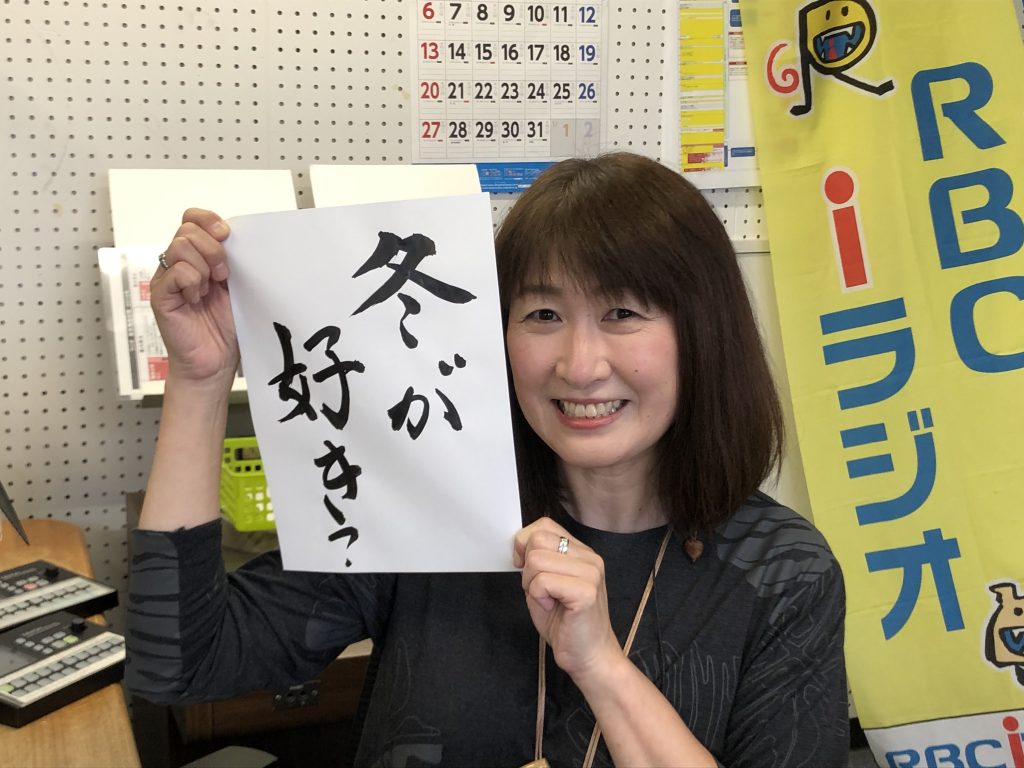 冬が
好き?
6 7 8 9 10 11 12
13 14 15 16 17 18 19
20 21 22 23 24 25 26
27 28 29 30 31 1 2
RBC
iラジオ
RBCi